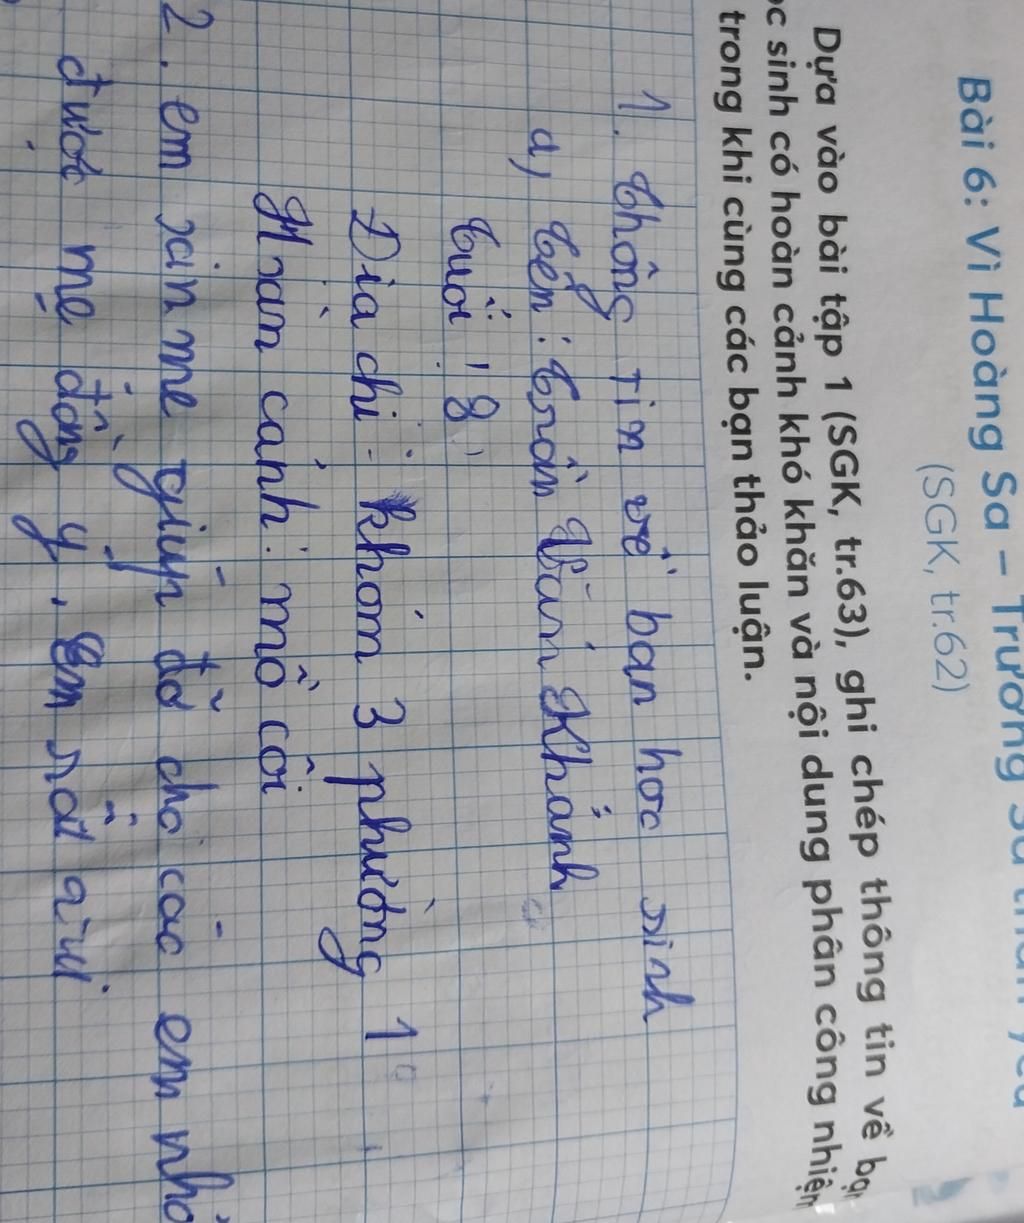 Bài 6: Vì Hoàng Sa – Trường Sa thân yêu
(SGK, tr.62)
Dựa vào bài tập 1 (SGK, tr.63), ghi chép thông tin về bạn
ọc sinh có hoàn cảnh khó khăn và nội dung phân công nhiệm
trong khi cùng các bạn thảo luận.
1. Thông tin về bạn học sinh
a) Tên: Trần Văn Khánh
Tuổi: 8
Địa chỉ: khóm 3 phường 1
Hoàn cảnh: mồ côi
2. em xin mẹ giúp đỡ cho các em nhỏ
được mẹ đồng ý, em rất vui